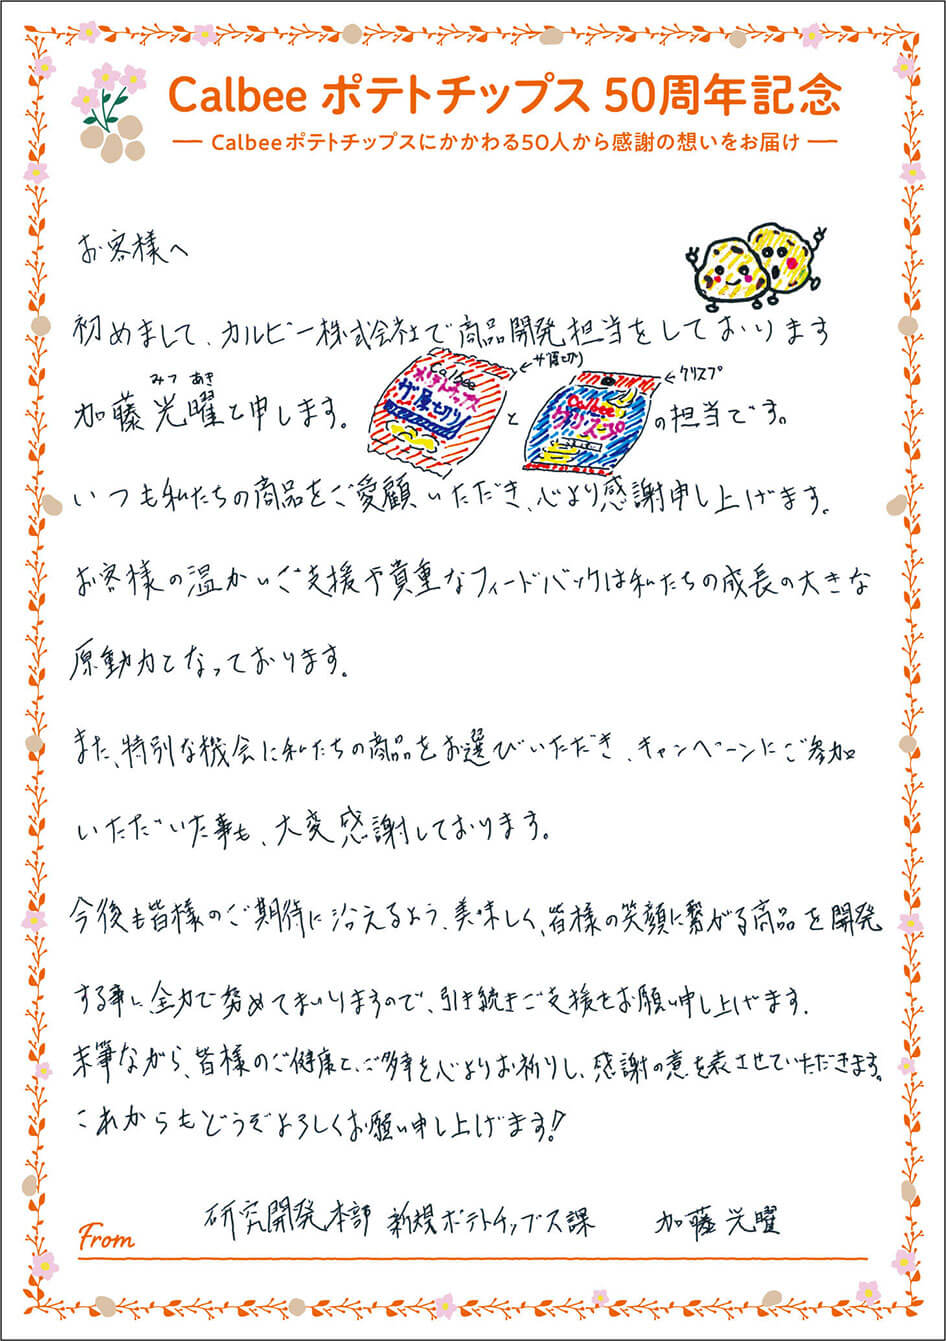 Calbee ポテトチップス 50周年記念
Calbeeポテトチップスにかかわる50人から感謝の想いをお届け
お客様へ
初めまして、カルビー株式会社で商品開発担当をしております
みつ あき
←ザ厚切り
←クリスプ
加藤光曜と申します。
Calbee
ポテトチップス
ザ厚切り
と
Calbee
クリスプ
の担当です。
いつも私たちの商品をご愛顧いただき、心より感謝申し上げます。
お客様の温かいご支援や貴重なフィードバックは私たちの成長の大きな
原動力となっております。
また、特別な機会に私たちの商品をお選びいただき、キャンペーンにご参加
いただいた事も、大変感謝しております。
今後も皆様のご期待に沿えるよう、美味しく、皆様の笑顔に繋がる商品を開発
する事に全力で努めてまいりますので、引き続きご支援をお願い申し上げます。
末筆ながら、皆様のご健康と、ご多幸を心よりお祈りし、感謝の意を表させていただきます。
これからもどうぞよろしくお願い申し上げます!!
From 研究開発本部 新規ポテトチップス課 加藤光曜